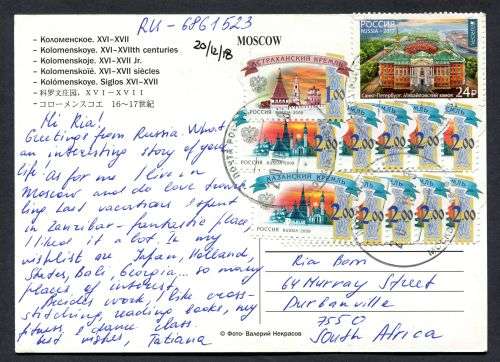 RU-6861523
20/12/18
— Коломенское. XVI–XVII
— Kolomenskoye. XVI–XVIIth centuries
— Kolomenskoje. XVI–XVII Jr.
— Kolomenskoïé. XVI–XVII siècles
— Kolómenskoye. Siglos XVI–XVII
— 科罗文庄园、XVI－XVII
— コローメンスコエ 16～17世紀
MOSCOW
Hi Ria!
Greetings from Russia. What
an interesting story of your
life as for me I live in
Moscow and do love travel-
ling. Last vacations I spent
in Zanzibar - fantastic place,
I liked it a lot. In my
wishlist are Japan, Holland,
Bali, Georgia... so many
places of interest.
Besides work, I like cross-
stitching, reading books, my
fitness & dance class.
best wishes, Tatiana
РОССИЯ
RUSSIA • 2017
Санкт-Петербург. Михайловский замок
24₽
АСТРАХАНСКИЙ КРЕМЛЬ
1.00
РОССИЯ RUSSIA•2009
2.00
2.00
2.00
2.00
2.00
РОССИЯ RUSSIA•2009
КАЗАНСКИЙ КРЕМЛЬ
2.00
2.00
2.00
2.00
2.00
РОССИЯ RUSSIA•2009
ПОЧТА РОССИИ
Ria Born
64 Murray Street
Durbanville
7550
South Africa
© Фото- Валерий Некрасов